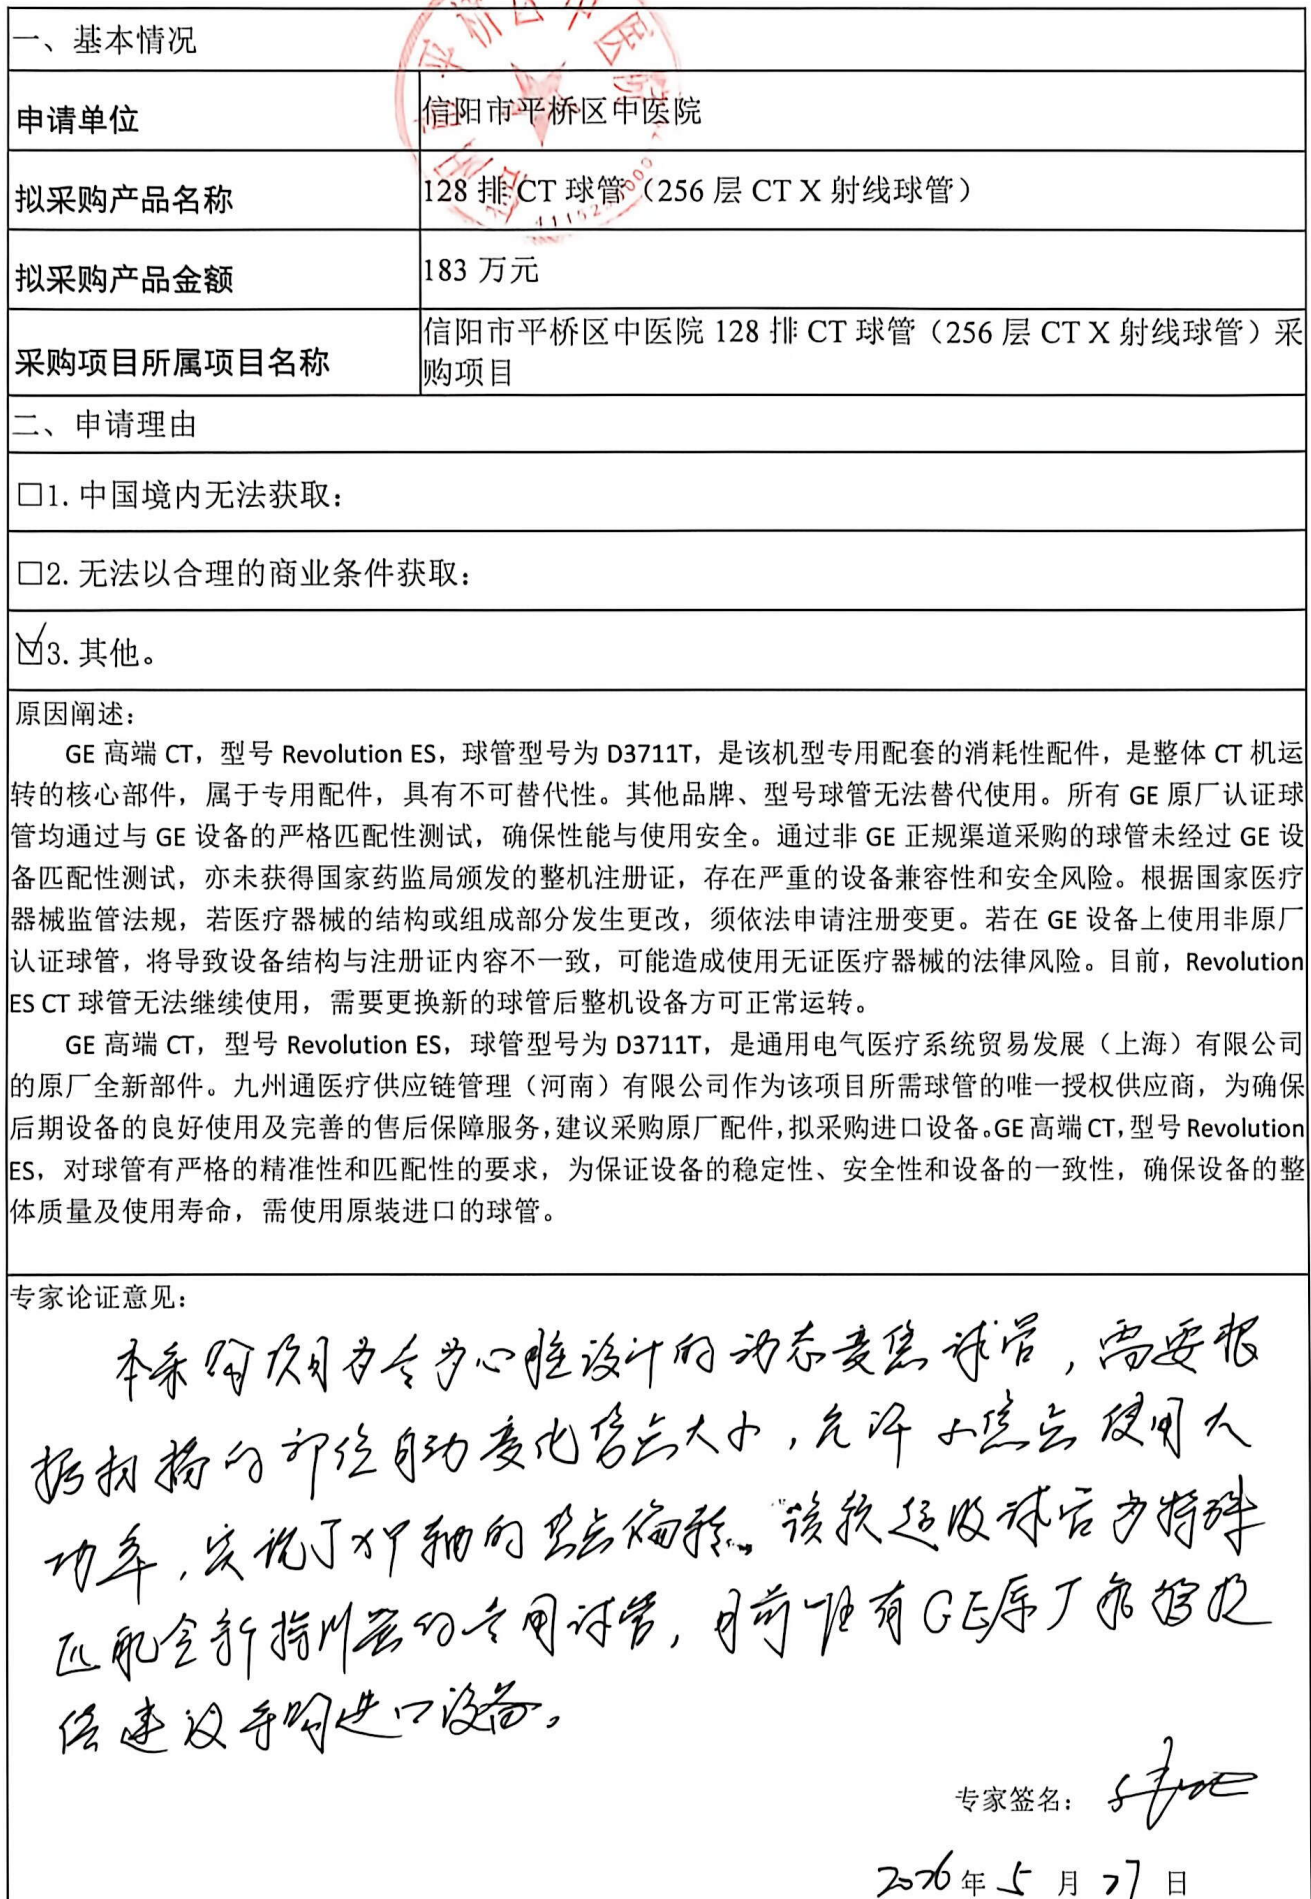 一、基本情况
申请单位
信阳市平桥区中医院
拟采购产品名称
128 排 CT 球管（256 层 CT X 射线球管）
拟采购产品金额
183 万元
采购项目所属项目名称
信阳市平桥区中医院 128 排 CT 球管（256 层 CT X 射线球管）采
购项目
二、申请理由
□1. 中国境内无法获取：
□2. 无法以合理的商业条件获取：
☑3. 其他。
原因阐述：
GE 高端 CT，型号 Revolution ES，球管型号为 D3711T，是该机型专用配套的消耗性配件，是整体 CT 机运
转的核心部件，属于专用配件，具有不可替代性。其他品牌、型号球管无法替代使用。所有 GE 原厂认证球
管均通过与 GE 设备的严格匹配性测试，确保性能与使用安全。通过非 GE 正规渠道采购的球管未经过 GE 设
备匹配性测试，亦未获得国家药监局颁发的整机注册证，存在严重的设备兼容性和安全风险。根据国家医疗
器械监管法规，若医疗器械的结构或组成部分发生更改，须依法申请注册变更。若在 GE 设备上使用非原厂
认证球管，将导致设备结构与注册证内容不一致，可能造成使用无证医疗器械的法律风险。目前，Revolution
ES CT 球管无法继续使用，需要更换新的球管后整机设备方可正常运转。
GE 高端 CT，型号 Revolution ES，球管型号为 D3711T，是通用电气医疗系统贸易发展（上海）有限公司
的原厂全新部件。九州通医疗供应链管理（河南）有限公司作为该项目所需球管的唯一授权供应商，为确保
后期设备的良好使用及完善的售后保障服务，建议采购原厂配件，拟采购进口设备。GE 高端 CT，型号 Revolution
ES，对球管有严格的精准性和匹配性的要求，为保证设备的稳定性、安全性和设备的一致性，确保设备的整
体质量及使用寿命，需使用原装进口的球管。
专家论证意见：
本采购项目为专为心脏设计的动态变焦球管，需要根
据扫描的部位自动变化焦点大小，允许小焦点使用大
功率，实现了 轴的焦点偏移。该款超级球管为特殊
匹配全新探测器的专用球管，目前唯有GE原厂能够提
供建议采购进口设备。
专家签名：
2026 年 5 月 27 日